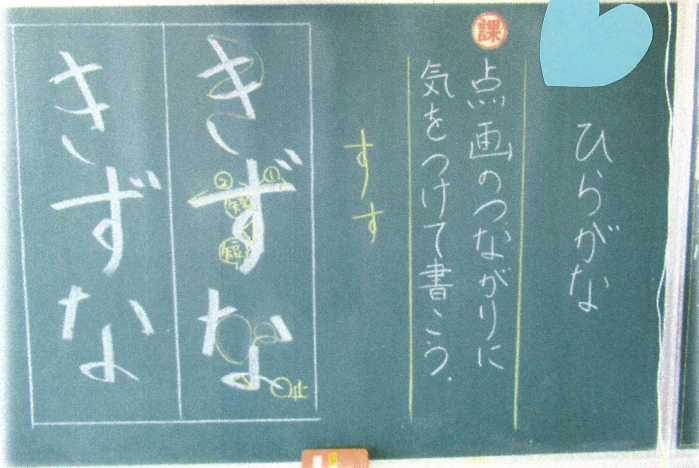 ひらがな
課
点画のつながりに
気をつけて書こう.
すす
きずな
① ②
短
止
きずな